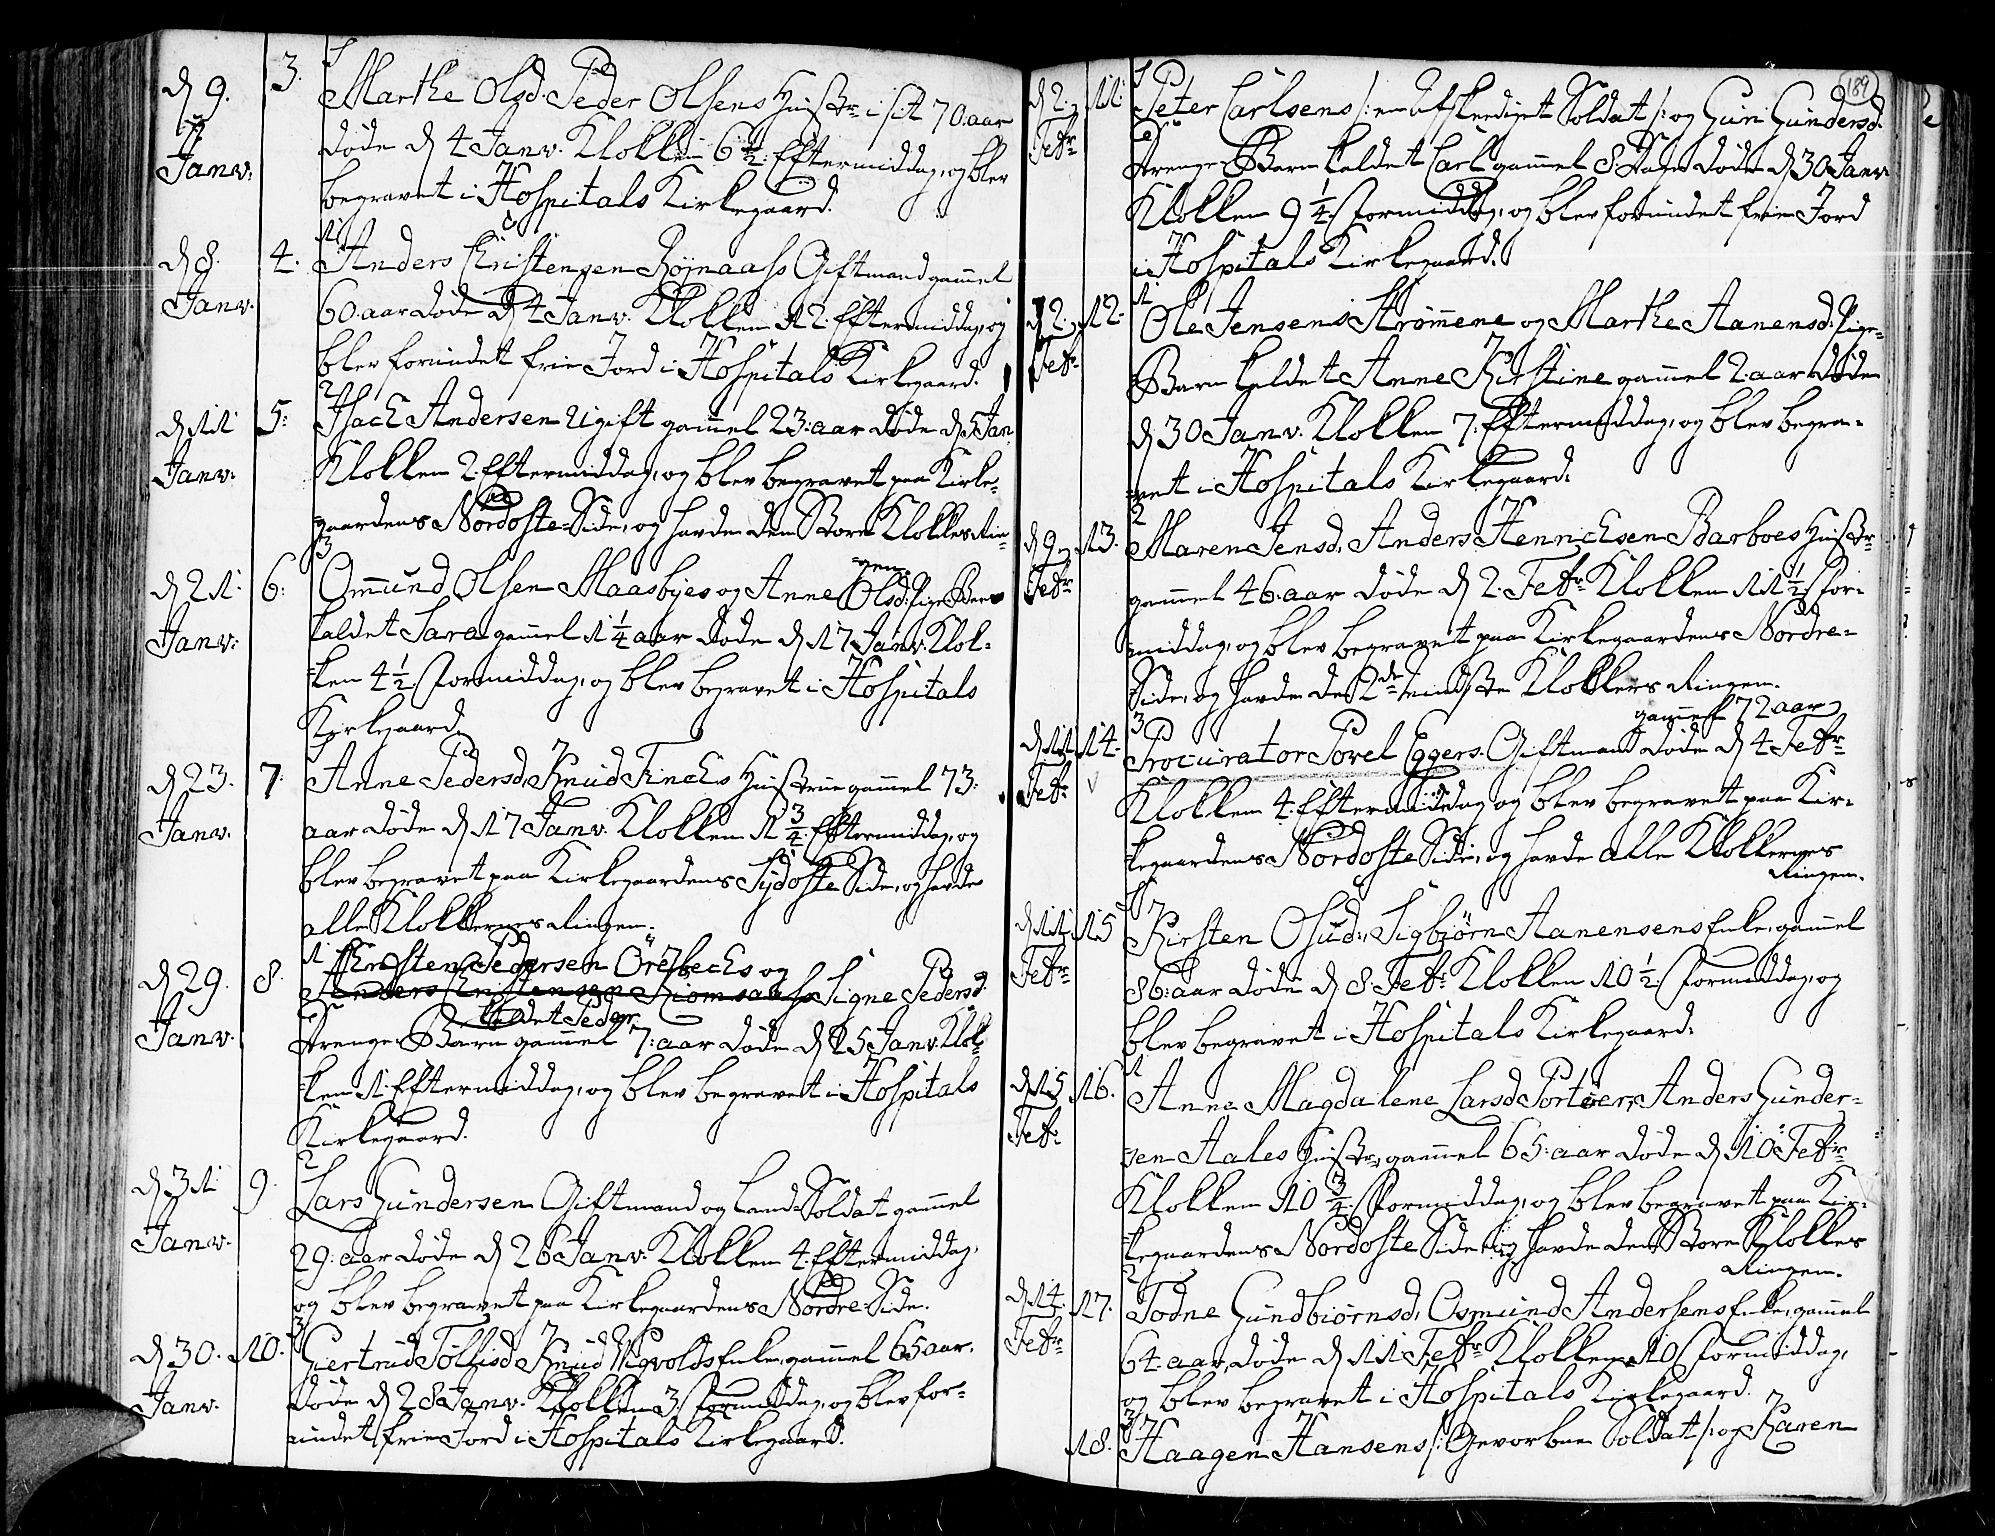 d 9. Janv: 3. Marthe Olsd. Peder Olsens Hustr: i sit 70 aar
døde d 4 Janv. Klokken 6 1/2 Eftermiddag, og blev
begravet i Hospitals Kirkegaard.
d 8. Janv. 4. Anders Christensen Giftmand gamel
60 aar døde d 4 Janv. Klokken 12 Eftermiddag, og
blev forundet frie Jord i Hospitals Kirkegaard.
d 11 Janv. 5: Isach Andersen Ugift gamel 23: aar døde d 5 Jan
Klokken 2. Eftermiddag, og blev begravet paa Kirke-
gaardens Nordoste Side, og havde den Store Klokkes Rin-
gen.
d 21. Janv. 6: Omund Olsen Maasbyes og Anne Olsd. Pige Barn
kaldet Sara gamel 1 1/4 aar døde d 17 Janv. Klok-
ken 4 1/2 Formiddag, og blev begravet i Hospitals
Kirkegaard.
d 23. Janv. 7. Anne Pedersd. Knud Finchs Hustrue gamel 73:
aar døde d 17 Janv. Klokken 1 3/4 Eftermiddag, og
blev begravet paa Kirkegaardens Sydoste Side, og havde
alle Klokkernes Ringen.
d 29. Janv. 8. Christen Pedersen Örebechs og
Anders Christensen Signe Pedersd.
kaldet Peder
Drenge Barn gamel 7: aar døde d 25 Janv. Klok-
ken 1. Eftermiddag, og blev begravet i Hospitals
Kirkegaard.
d 31 Janv. 9. Lars Gundersen Giftmand og Land-Soldat gamel
29: aar døde d 26 Janv. Klokken 4. Eftermiddag,
og blev begravet paa Kirkegaardens Nordre-Side.
d 30. Janv. 10. Giertrud Tollisd. Knud Wigvolds Enke, gamel 65 aar.
døde d 28 Janv. Klokken 3. Formiddag, og blev for-
undet frie Jord i Hospitals Kirkegaard.
189
d 2. Febr 11: Peter Carlsens /: en Afskediget Soldat :/ og Guri Gundersd.
Drenge Barn kaldet Carl gamel 8. Dage døde d 30 Janv.
Klokken 9 1/4 Formiddag, og blev forundet frie Jord
i Hospitals Kirkegaard.
d 2. Febr 12. Ole Jensens Strömene og Marthe Aanensd. Pige-
Barn kaldet Anne Kirstine gamel 2. aar døde
d 30 Janv. Klokken 7. Eftermiddag, og blev begra-
vet i Hospitals Kirkegaard.
d 9. Febr 13. Maren Jensd. Anders Hennichsen Barboes Hustr:
gamel 46. aar døde d 2. Febr Klokken 11 1/2 For-
middag, og blev begravet paa Kirkegaardens Nordre-
Side, og havde de 2de mindste Klokkers Ringen.
gamel 72 aar
d 11 Febr 14. Procurator Povel Eggers. Giftmand døde d 4 Febr
Klokken 4. Eftermiddag og blev begravet paa Kir-
kegaardens Nordoste Side, og havde alle Klokkernes
Ringen.
d 11 Febr 15 Kirsten Osud. Sigbjörn Aanensens Enke, gamel
86: aar døde d 8. Febr Klokken 10 1/2 Formiddag, og
blev begravet i Hospitals Kirkegaard.
d 15 Febr 16. Anne Magdalene Larsd. Anders Gunder-
sen Aales Hustr: gamel 65: aar døde d 10 Febr
Klokken 10 3/4 Formiddag, og blev begravet paa Kir-
kegaardens Nordoste Side, og havde den Store Klokkes
Ringen.
d 14 Febr 17. Todne Gundbiörnsd. Osmund Andersens Enke, gamel
64. aar, døde d 11 Febr Klokken 10 Formiddag,
og blev begravet i Hospitals Kirkegaard.
18. Haagen Hansens /: Gevorben Soldat :/ og Karen